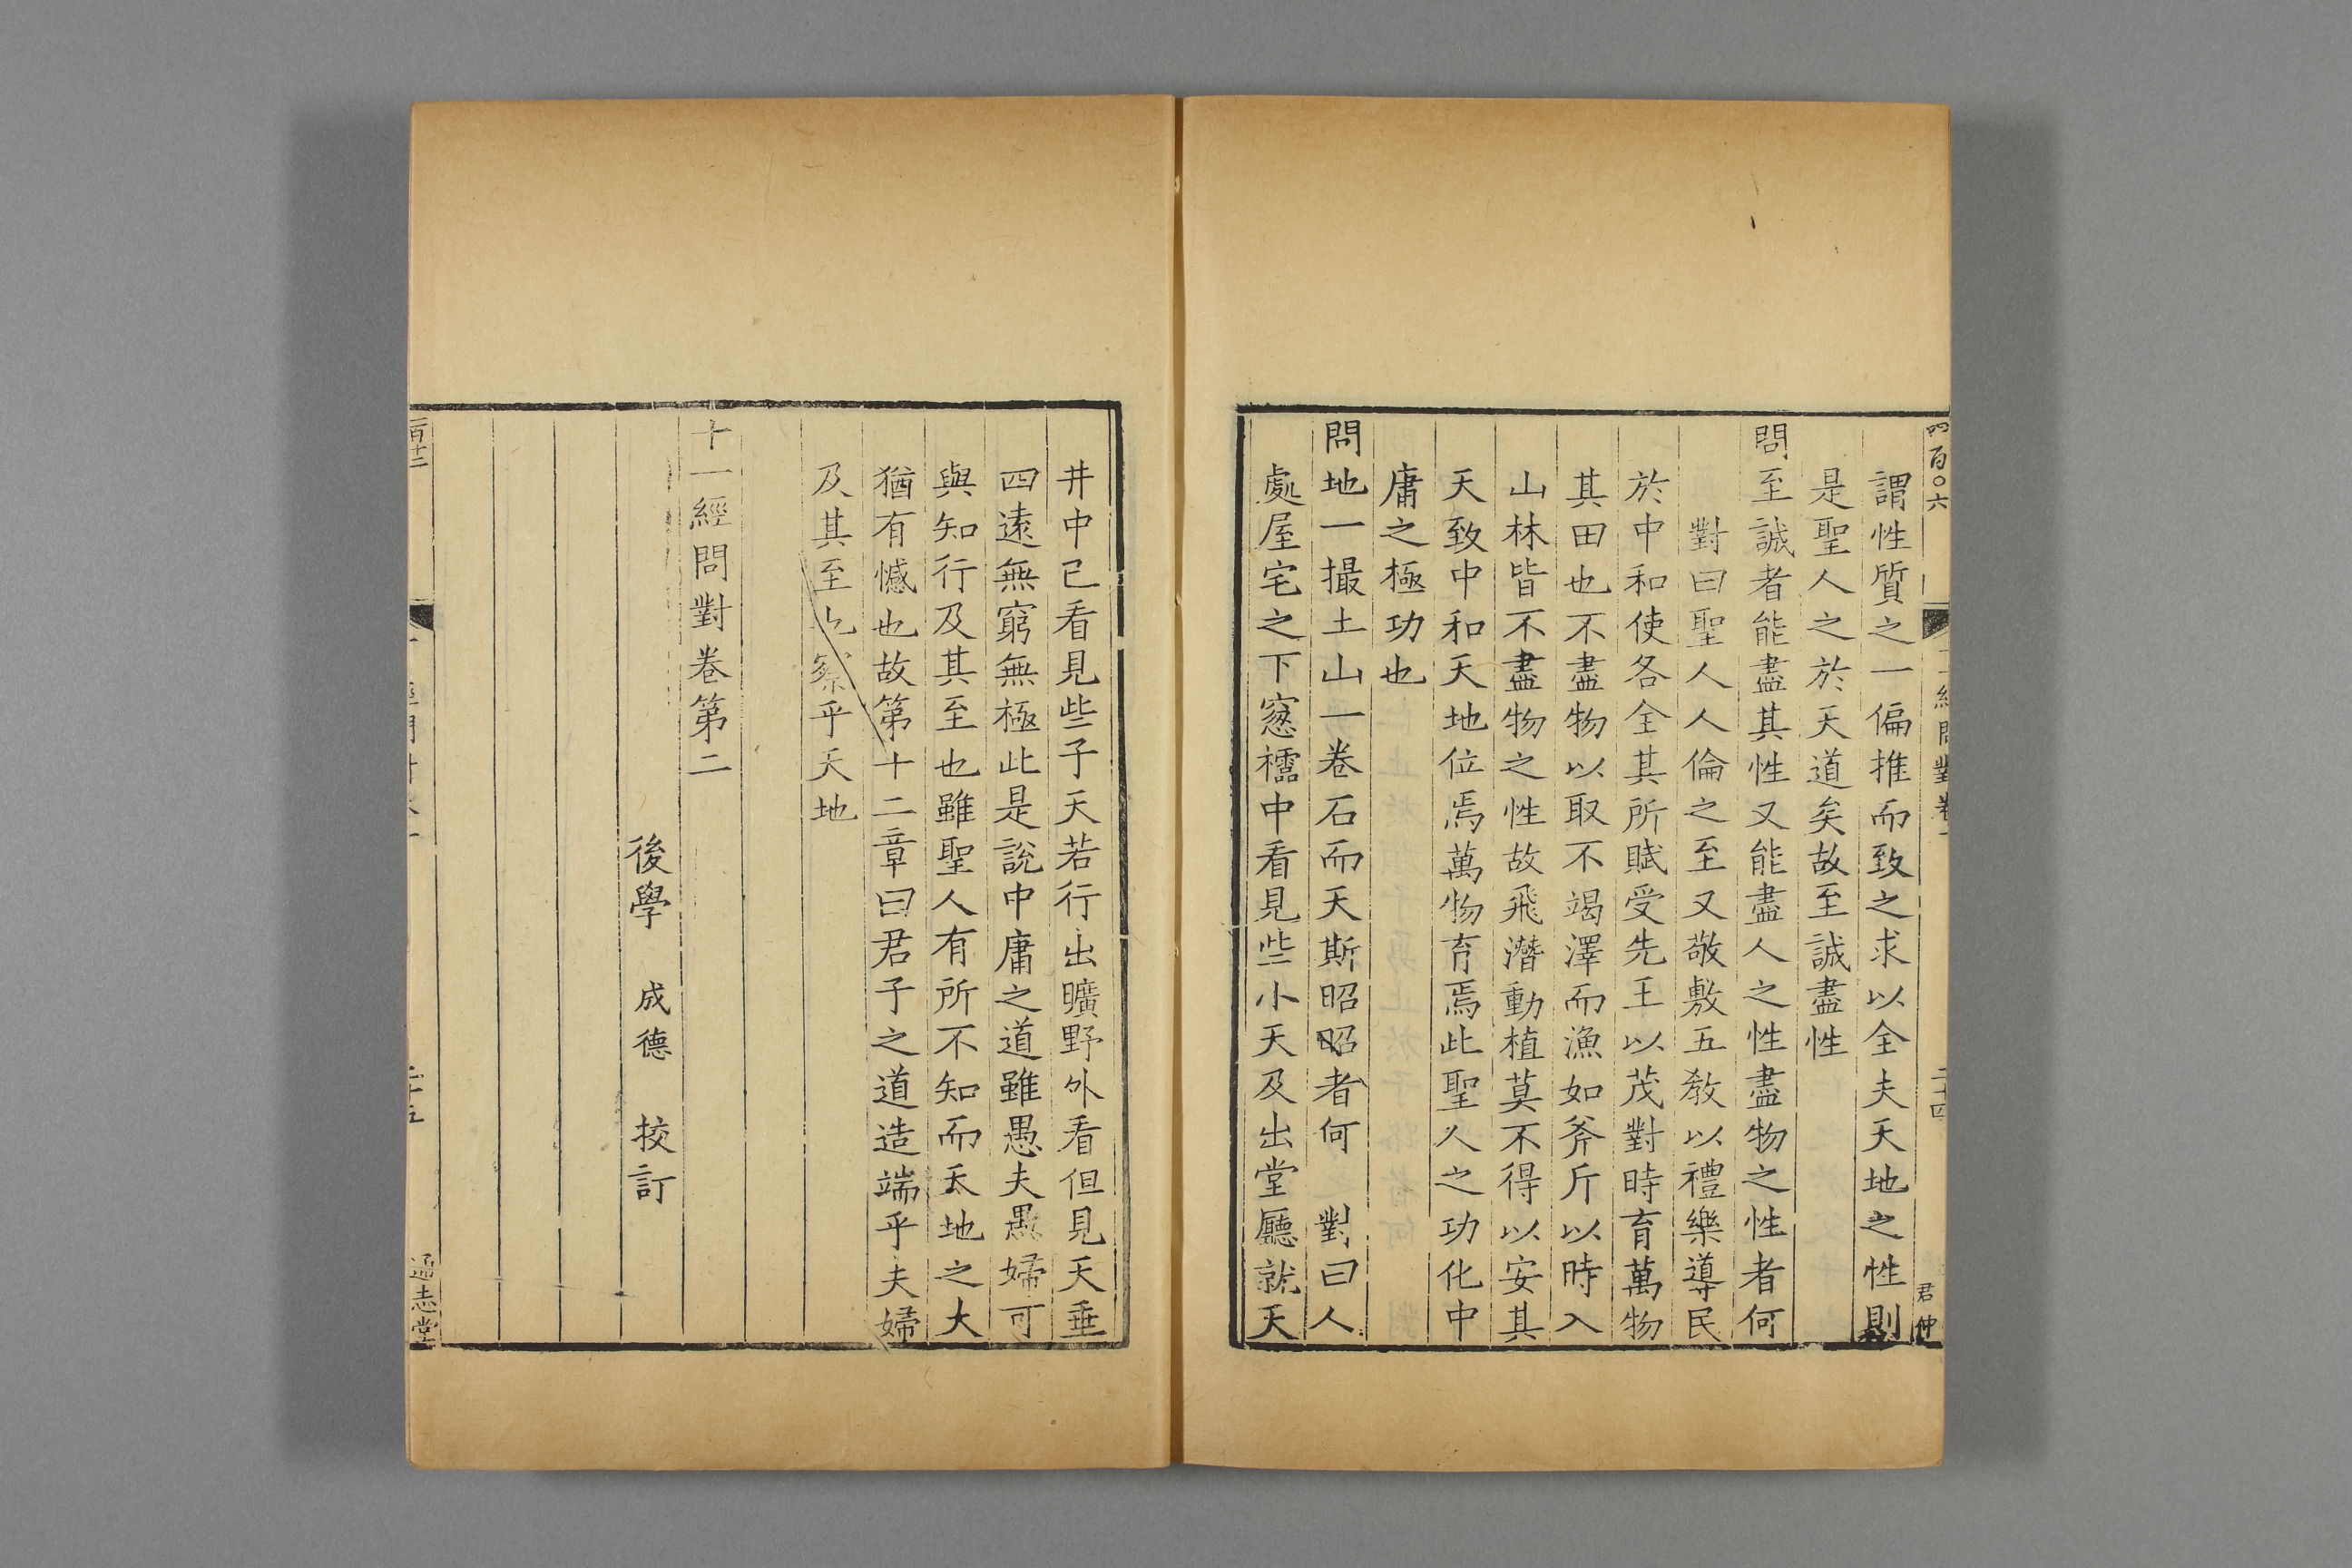 四百○六
君仲
謂性質之一偏推而致之求以全夫天地之性則
是聖人之於天道矣故至誠盡性
問至誠者能盡其性又能盡人之性盡物之性者何
對曰聖人人倫之至又敬敷五敎以禮樂導民
於中和使各全其所賦受先王以茂對時育萬物
其田也不盡物以取不竭澤而漁如斧斤以時入
山林皆不盡物之性故飛潛動植莫不得以安其
天致中和天地位焉萬物育焉此聖人之功化中
庸之極功也
問地一撮土山一卷石而天斯昭昭者何 對曰人
處屋宅之下窻櫺中看見些小天及出堂廳就天
井中已看見些子天若行出曠野外看但見天垂
四遠無窮無極此是說中庸之道雖愚夫愚婦可
與知行及其至也雖聖人有所不知而天地之大
猶有憾也故第十二章曰君子之道造端乎夫婦
及其至也察乎天地
十一經問對卷第二
後學 成德 挍訂
通志堂